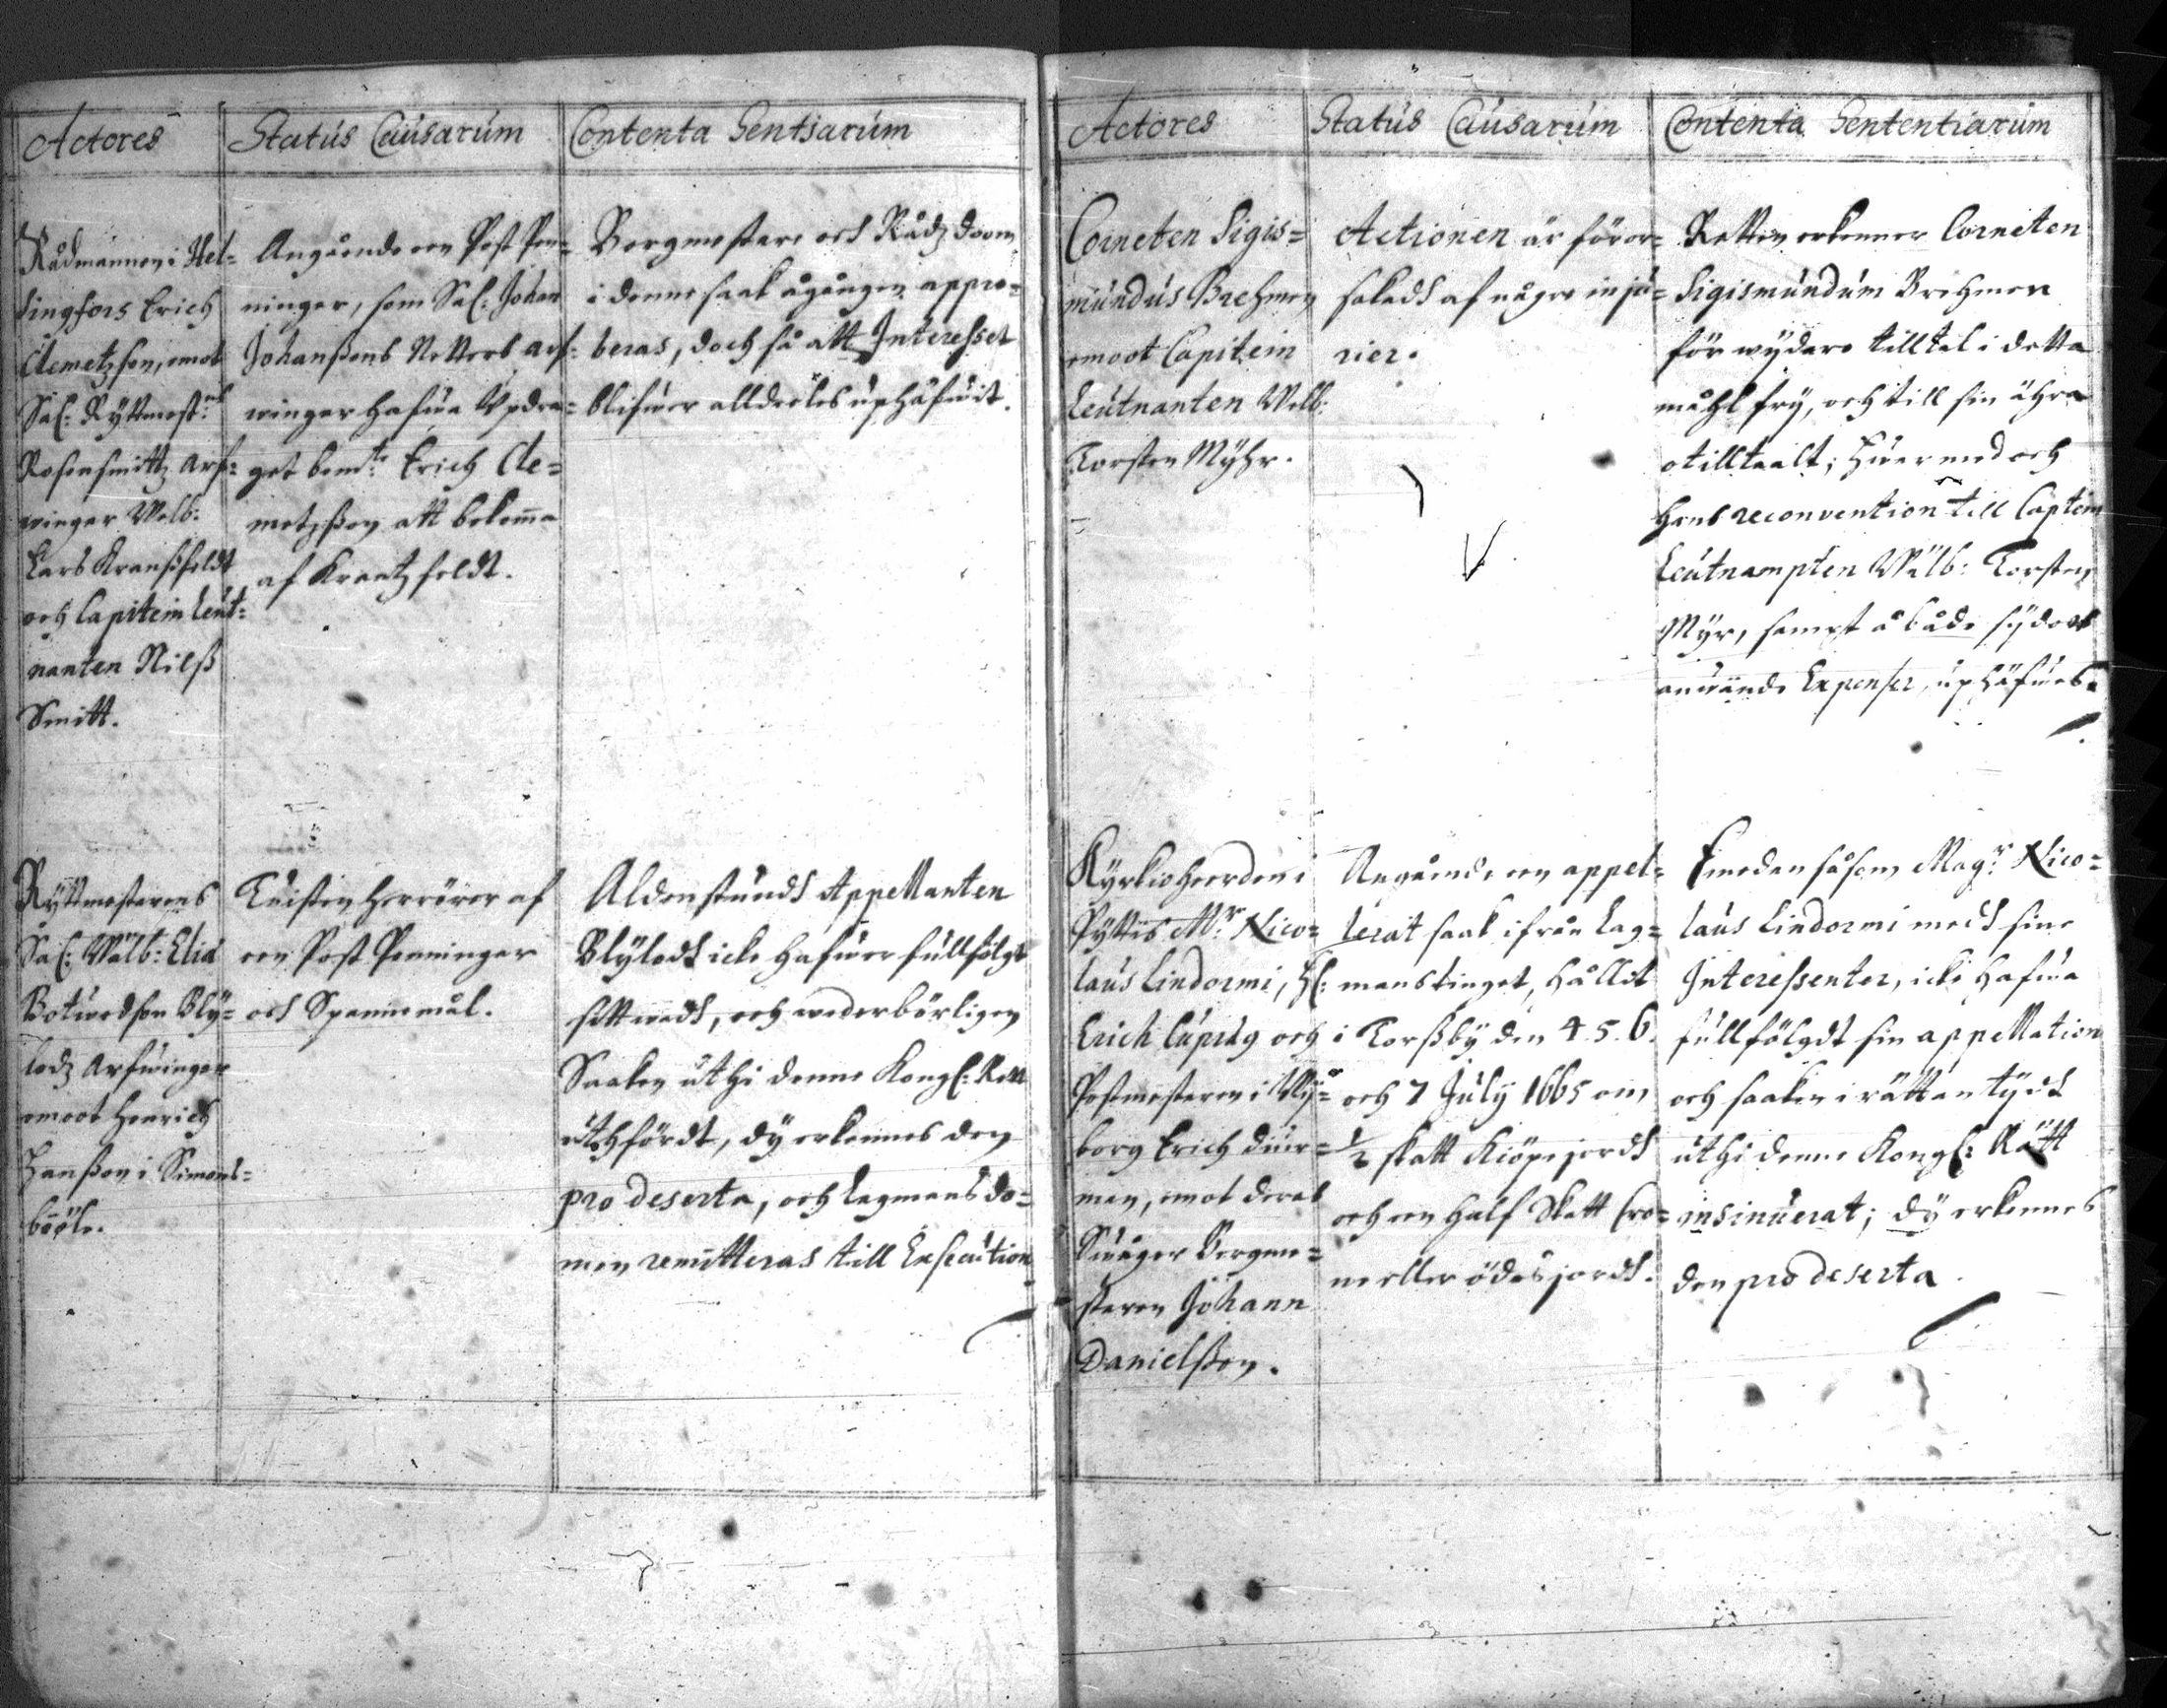 Actores
Status Causarum
Contenta Sentiarum
Rådmannen i Hel=
singfors Erich
Clemetzson, emot
Sal: Ryttmest:
Rosensmittz Arf=
wingar Welb:
Lars Kransfeldt
och Capitein Leut=
nanten Nilß
Smitt.
Angående een Post Pen=
ningar, som Sal: Johan
Johanßons Retters Arf=
wingar hafwa Updra=
get bem:te Erich Cle=
metzßon att bekomma
af Krantzfeldt.
Borgmestare och Rådz doom
i denne saak ågången appro=
beras, doch så att Interesset
blifwer alldeeles uphäfwit.
Ryttmesterens
Sal: Wälb: Elia
Botwedson Bly=
lodz Arfwingar
emoot Henrich
Hanßon i Simons=
bööle.
Twisten herrörer af
een Post Penningar
och Spannemål.
Aldenstundh Appellanten
Blylodh icke hafwer fullfölgt
sitt wadh, och wederbörligen
Saaken uthi denne Kongl: Rätt
uthfördt, dy erkennes den
pro deserta, och Lagmans do=
men remitteras till Execution
Actores
Status Causarum
Contenta Sententiarum
Corneten Sigis=
mundus Brehmen
emoot Capitein
Leutnanten Welb:
Torsten Myhr.
Actionen är föror=
sakadh af någre inju=
rier.
Retten erkenner Corneten
Sigismundum Brehmen
för wydare tilltal i detta
måhl fry, och till sin ähra
otilltaalt; Hwarmed och
hans reconvention till Captein
Leutnampten Wälb: Torsten
Myr, sampt å både sydor
anwände Expenser, uphäfwes.
Kyrkioheerden i
Pyttis M:r Nico=
laus Lindormi, Hl:
Erich Cuprus och
Postmesteren i Wy=
borg Erich Diur=
man, emot deras
Swåger Borgme=
staren Johann
Danielßon.
Angående een appel=
lerat saak ifrån Lag=
manstinget, hållit
i Torßby den 4. 5. 6.
och 7 July 1665 om
1/2 skatt Kiöpe jordh
och een half Skatt Cro=
ne eller ödes jordh.
Emedan såsom Mag:r Nico=
laus Lindormi medh sine
Interessenter, icke hafwa
fullfölgdt sin appellation
och saaken i rättan tydh
uthi denne Kongl: Rätt
insinuerat; dy erkennes
den pro deserta.